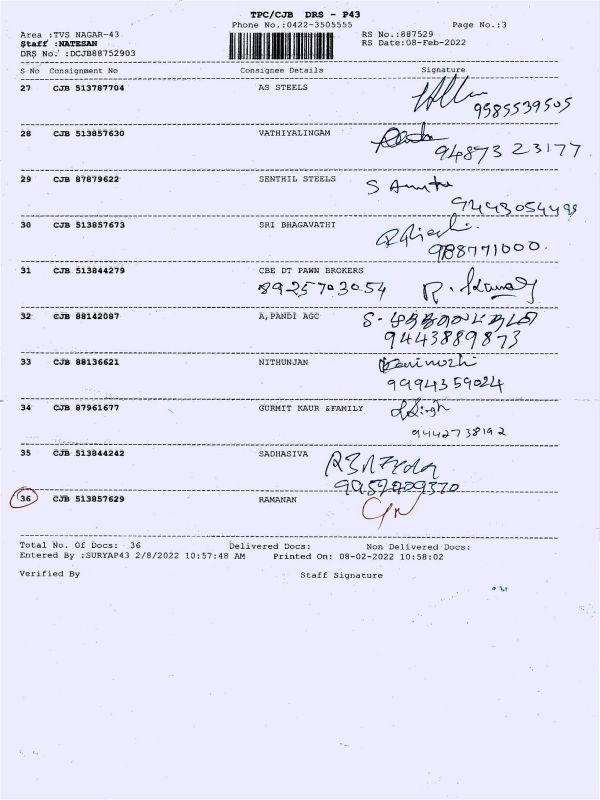 TPC/CJB DRS - P43
Phone No.:0422-3505555
Page No.:3
Area :TVS NAGAR-43
RS No.:887529
Staff :NATESAN
RS Date:08-Feb-2022
DRS No. :DCJB88752903
S No Consignment No Consignee Details Signature
27 CJB 513787704 AS STEELS
9585539505
28 CJB 513857630 VATHIYALINGAM
94873 23177
29 CJB 87879622 SENTHIL STEELS
94443054498
30 CJB 513857673 SRI BHAGAVATHI
988771000.
31 CJB 513844279 CBE DT PAWN BROKERS
8925703054
32 CJB 88142087 A,PANDI AGC
9443889873
33 CJB 88136621 NITHUNJAN
9994359024
34 CJB 87961677 GURMIT KAUR &FAMILY
9442738192
35 CJB 513844242 SADHASIVA
36 CJB 513857629 RAMANAN
Total No. Of Docs: 36 Delivered Docs: Non Delivered Docs:
Entered By :SURYAP43 2/8/2022 10:57:48 AM Printed On: 08-02-2022 10:58:02
Verified By Staff Signature